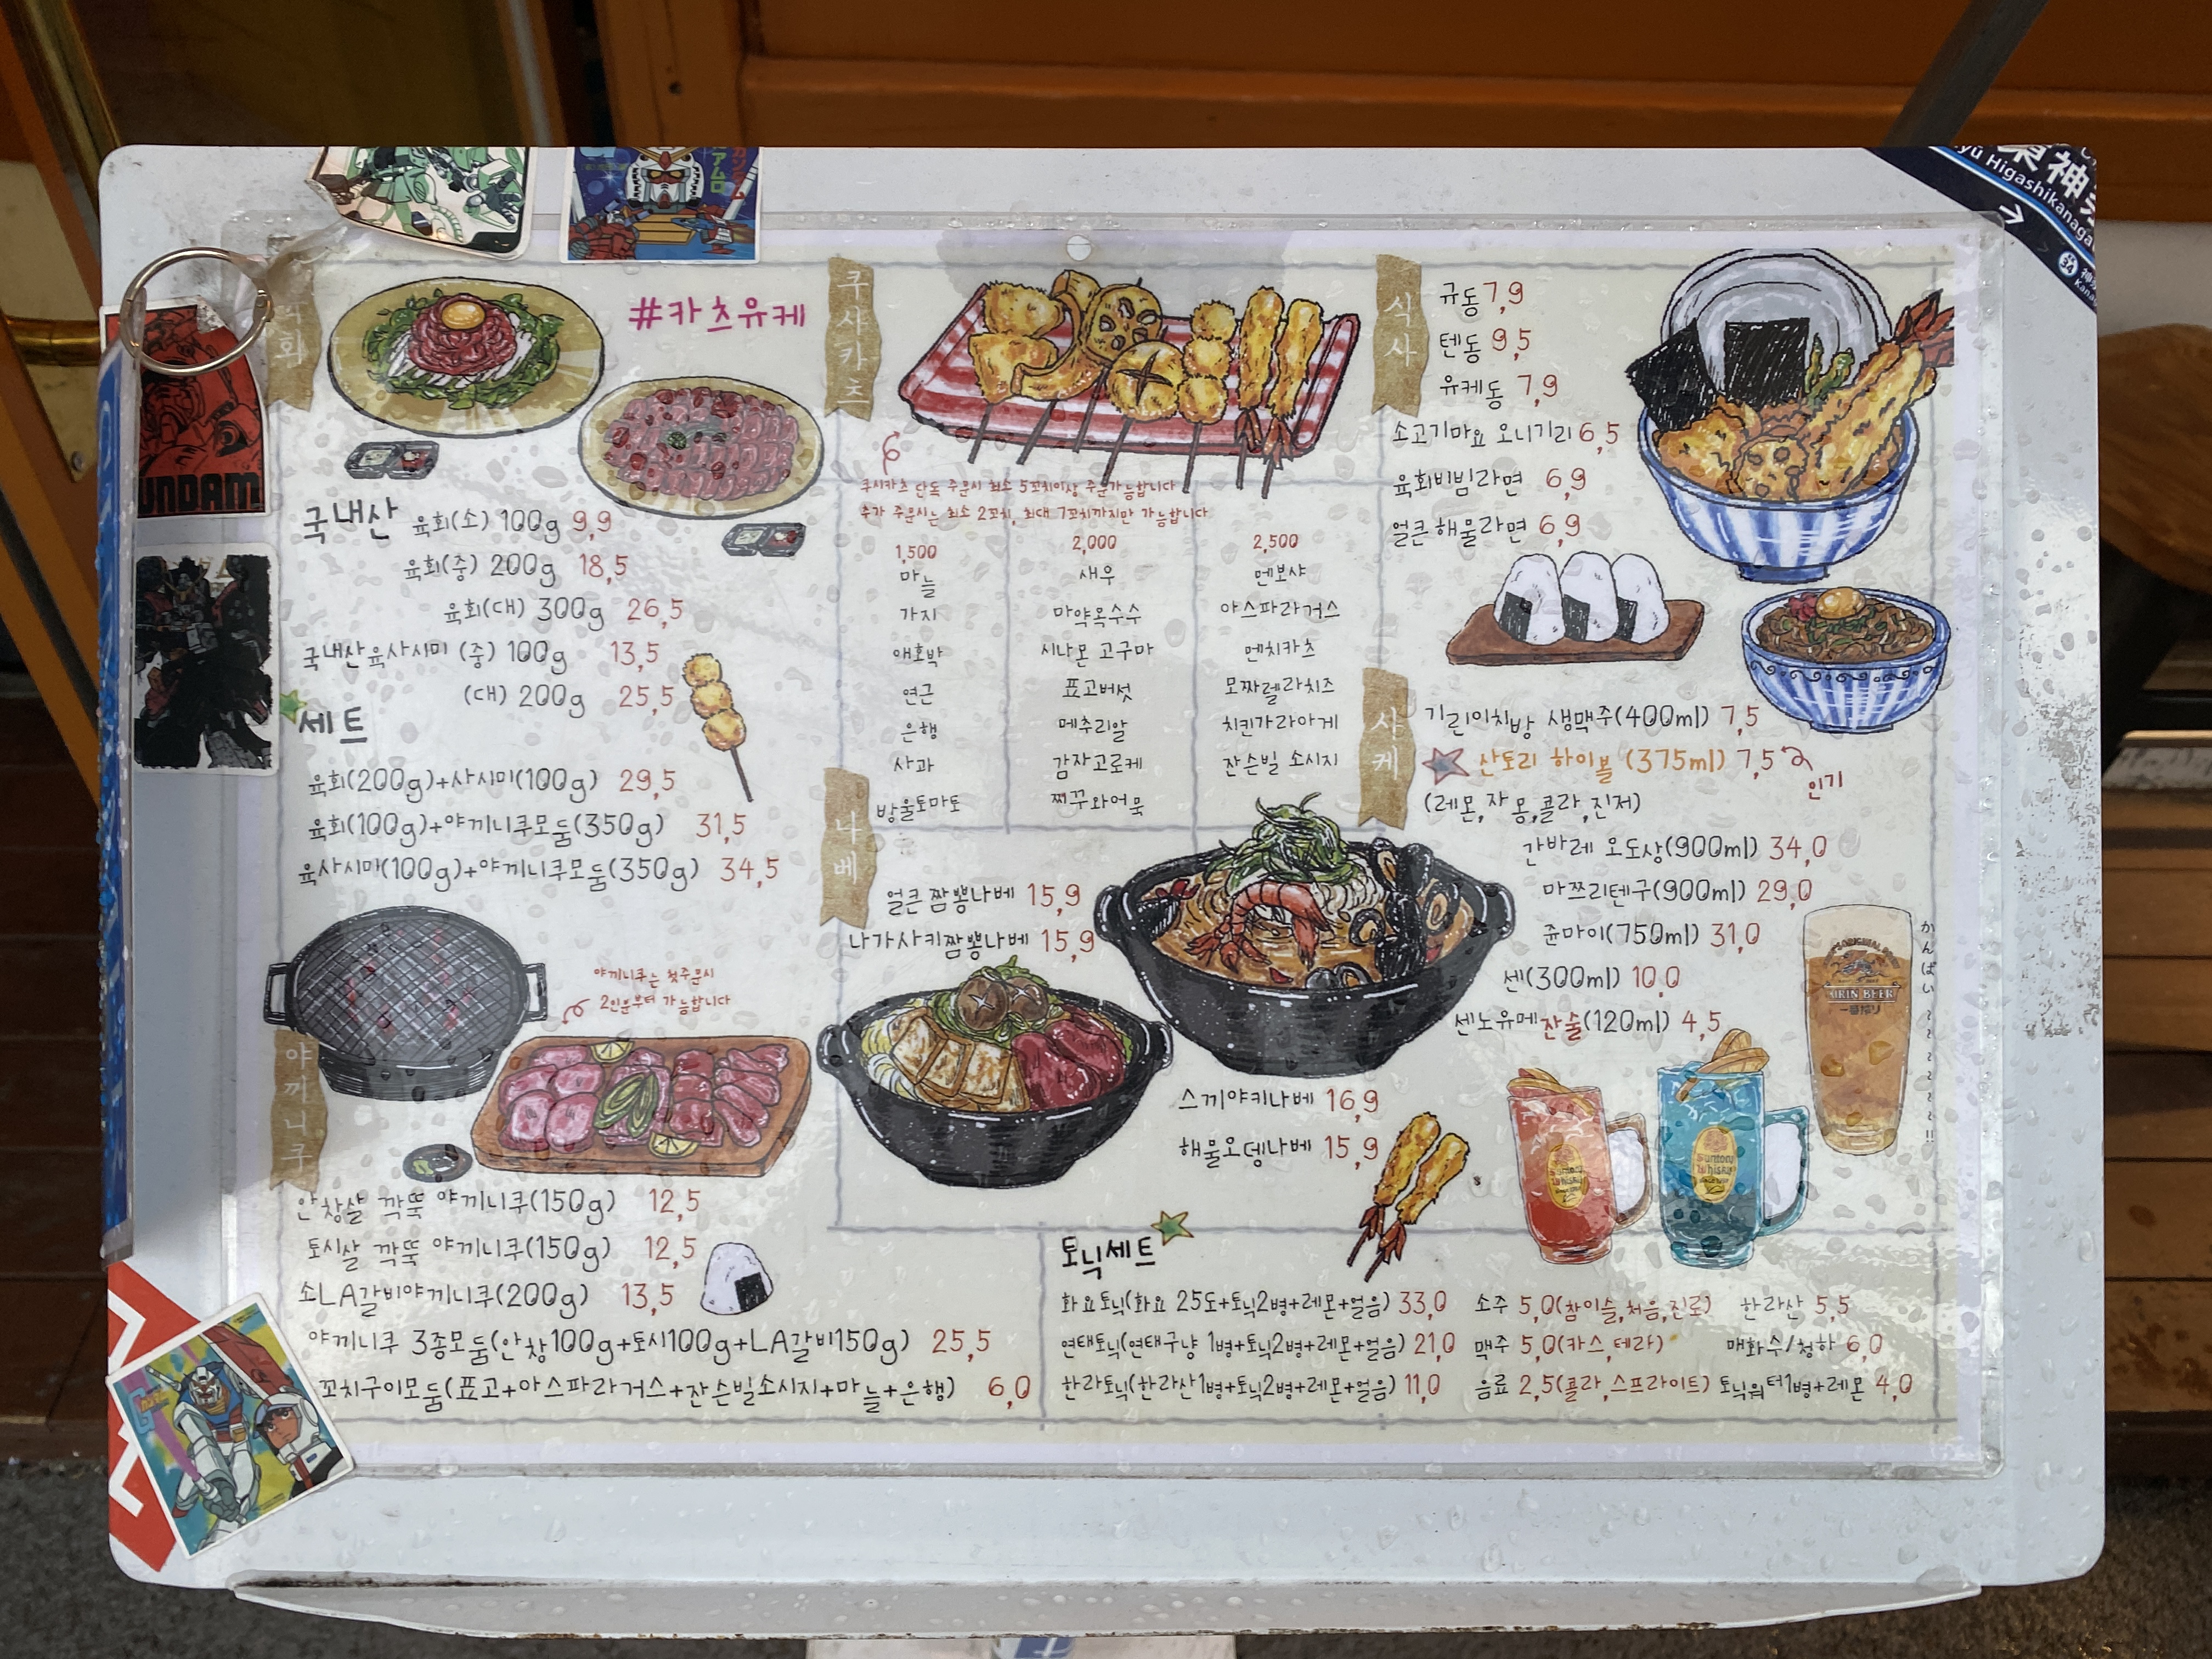 #카츠유케
국내산 육회(소) 100g 9,9
육회(중) 200g 18,5
육회(대) 300g 26,5
국내산육사시미 (중) 100g 13,5
(대) 200g 25,5
세트
육회(200g)+사시미(100g) 29,5
육회(100g)+야끼니쿠모둠(350g) 31,5
육사시미(100g)+야끼니쿠모둠(350g) 34,5
야끼니쿠는 첫주문시
2인분부터 가능합니다
야끼니쿠
안창살 깍뚝 야끼니쿠(150g) 12,5
토시살 깍뚝 야끼니쿠(150g) 12,5
소LA갈비야끼니쿠(200g) 13,5
야끼니쿠 3종모둠(안창100g+토시100g+LA갈비150g) 25,5
꼬치구이모둠(표고+아스파라거스+잔슨빌소시지+마늘+은행) 6,0
쿠시카츠
쿠시카츠 단독 주문시 최소 5꼬치이상 주문가능합니다
추가 주문시는 최소 2꼬치, 최대 7꼬치까지만 가능합니다
1,500
마늘
가지
애호박
연근
은행
사과
방울토마토
2,000
새우
마약옥수수
시나몬 고구마
표고버섯
메추리알
감자고로케
쩌꾸와어묵
2,500
멘보샤
아스파라거스
멘치카츠
모짜렐라치즈
치킨가라아게
잔슨빌 소시지
나베
얼큰짬뽕나베 15,9
나가사키짬뽕나베 15,9
스끼야키나베 16,9
해물오뎅나베 15,9
식사
규동 7,9
텐동 9,5
유케동 7,9
소고기마요 오니기리 6,5
육회비빔라면 6,9
얼큰해물라면 6,9
사케
기린이치방 생맥주(400ml) 7,5
산토리 하이볼 (375ml) 7,5
인기
(레몬,자몽,콜라,진저)
간바레 오또상(900ml) 34,0
마쯔리텐구(900ml) 29,0
쥰마이(750ml) 31,0
센(300ml) 10,0
센노유메잔술(120ml) 4,5
かんぱい~~~~~~!!
KIRIN BEER
一番搾り
Suntory
Whisky
Suntory
Whisky
토닉세트
화요토닉(화요 25도+토닉2병+레몬+얼음) 33,0
연태토닉(연태구냥 1병+토닉2병+레몬+얼음) 21,0
한라토닉(한라산1병+토닉2병+레몬+얼음) 11,0
소주 5,0(참이슬,처음,진로) 한라산 5,5
맥주 5,0(카스,테라) 매화수/청하 6,0
음료 2,5(콜라,스프라이트) 토닉워터1병+레몬 4,0
UNDAM